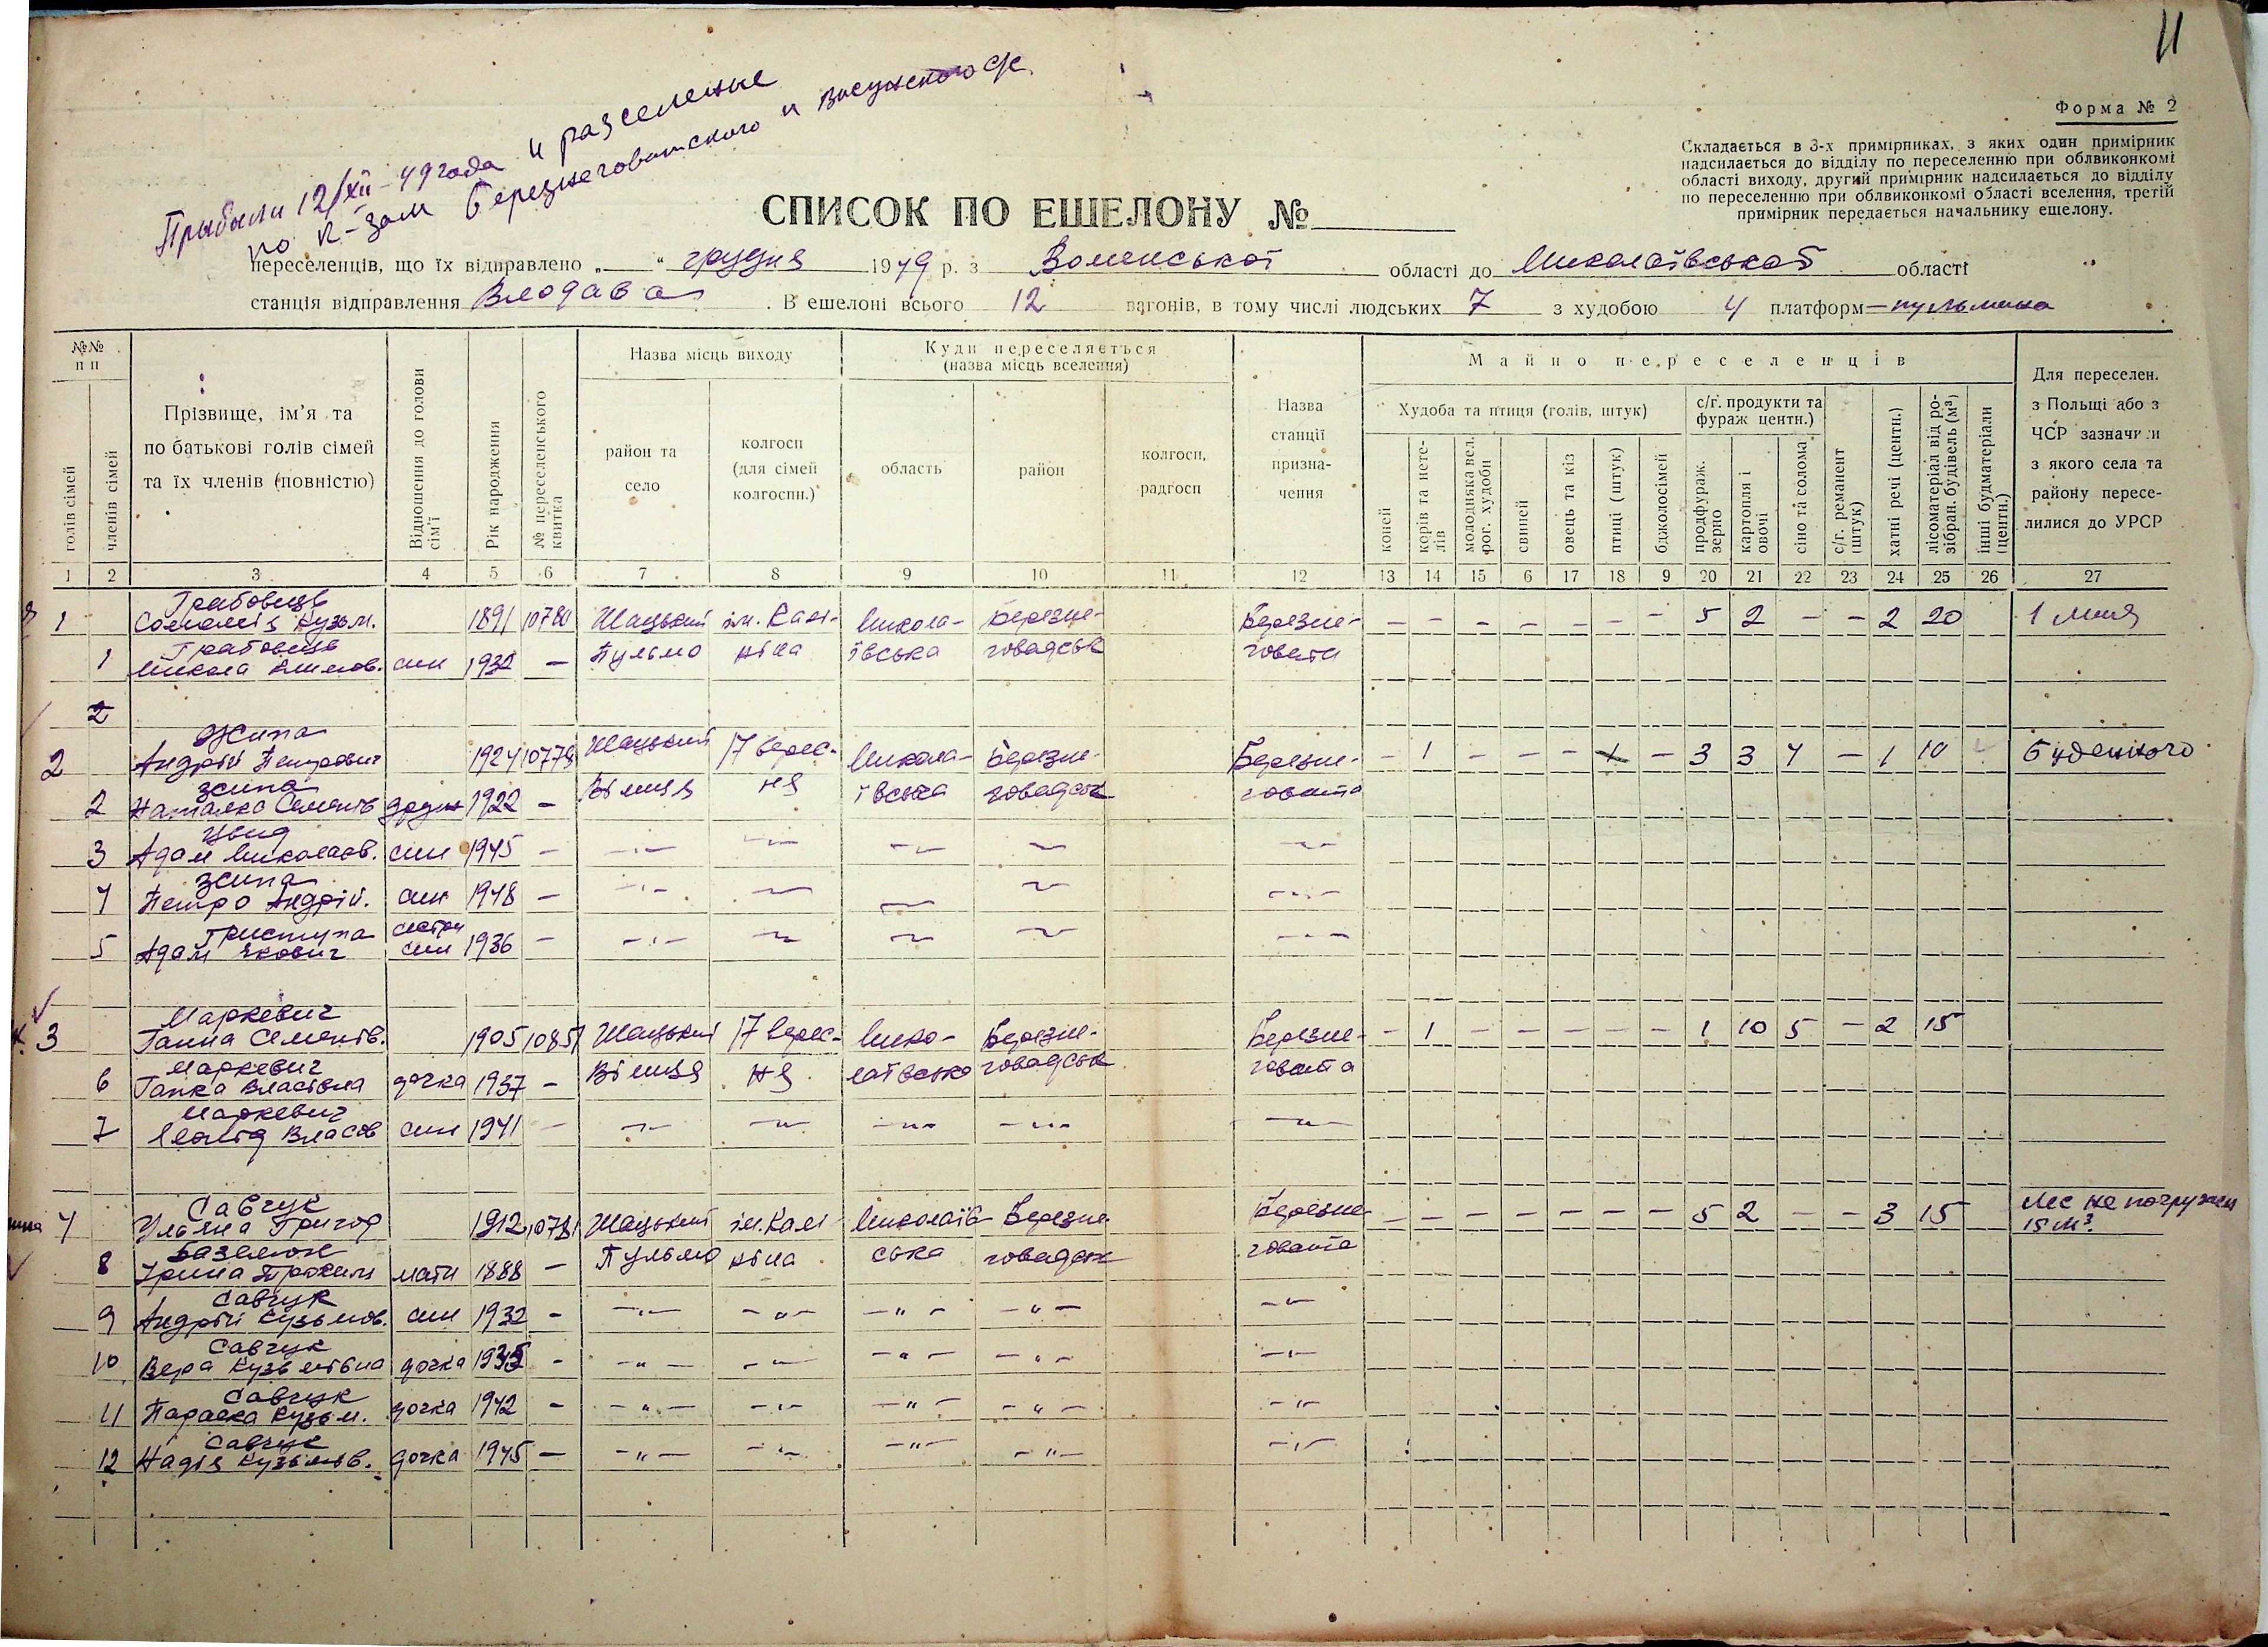 11
Форма № 2
Складається в 3-х примірниках, з яких один примірник
надсилається до відділу по переселенню при облвиконкомі
області виходу, другий примірник надсилається до відділу
по переселенню при облвиконкомі області вселення, третій
примірник передається начальнику ешелону.
Прибыли 12/XII-49 года и разселенные
по к-зам Березнеговатского и Висунского с/с.
СПИСОК ПО ЕШЕЛОНУ №
переселенців, що їх відправлено „ “ грудня 1949 р. з Волинської області до Миколаївської області
станція відправлення Влодава . В ешелоні всього 12 вагонів, в тому числі людських 7 з худобою 4 платформ — пульмана
№№ п п
голів сімей
членів сімей
Прізвище, ім'я та по батькові голів сімей та їх членів (повністю)
Відношення до голови сім'ї
Рік народження
№ переселенського квитка
Назва місць виходу
район та село
колгосп (для сімей колгоспн.)
Куди переселяється (назва місць вселення)
область
район
колгосп, радгосп
Назва станції призна- чення
Майно переселенців
Худоба та птиця (голів, штук)
коней
корів та нете- лів
молодняка вел. рог. худоби
свиней
овець та кіз
птиці (штук)
бджолосімей
с/г. продукти та фураж центн.)
продфураж. зерно
картопля і овочі
сіно та солома
с/г. реманент (штук)
хатні речі (центн.)
лісоматеріал від ро- зібран. будівель (м³)
інші будматеріали (центн.)
Для переселен. з Польщі або з ЧСР зазначи и з якого села та району пересе- лилися до УРСР
1 2 3 4 5 6 7 8 9 10 11 12 13 14 15 6 17 18 9 20 21 22 23 24 25 26 27
Грабовець
1 Соломія Кузьм. 1891 10780 Шацький ім. Калі- Микола- Березне- Березне- - - - - - - - 5 2 - - 2 20 1 Мая
Грабовець
1 Микола Климов. син 1932 — Пульмо ніна ївська говадськ говата
2
Жипа
2 Андрій Петрович 1924 10779 Шацький 17 верес- Микола- Березне- Березне- - 1 - - - 1 - 3 3 4 - 1 10 Буденного
Жипа
2 Наталка Семенів друж 1922 — Вілиця ня ївська говадськ говата
3 Адам Миколаєв. син 1945 — -"- -"- -"- -"- -"-
Жипа
4 Петро Андрій. син 1948 — -"- -"- -"- -"- -"-
Приступа сестри
5 Адам Якович син 1936 — -"- -"- -"- -"- -"-
Маркевич
3 Ганна Семенів. 1905 10851 Шацький 17 верес- Мико- Березне- Березне- - 1 - - - - - 1 10 5 - 2 15
Маркевич
6 Гапка Власівна дочка 1937 — Вілиця ня лаївська говадськ говата
Маркевич
7 Леонід Власов син 1941 — -"- -"- -"- -"- -"-
Савчук
4 Уляна Григор 1912 10781 Шацький ім. Калі- Миколаїв- Березне- Березне- - - - - - - - 5 2 - - 3 15 Лес не погружен
15 м³.
8 Ірина Трохим мати 1888 — Пульмо ніна ська говадськ говата
Савчук
9 Андрій Кузьмов. син 1932 - -"- -"- -"- -"- -"-
Савчук
10 Вера Кузьмівна дочка 1935 - -"- -"- -"- -"- -"-
Савчук
11 Параска Кузьм. дочка 1942 - -"- -"- -"- -"- -"-
Савчук
12 Надія Кузьмів. дочка 1945 — -"- -"- -"- -"- -"-